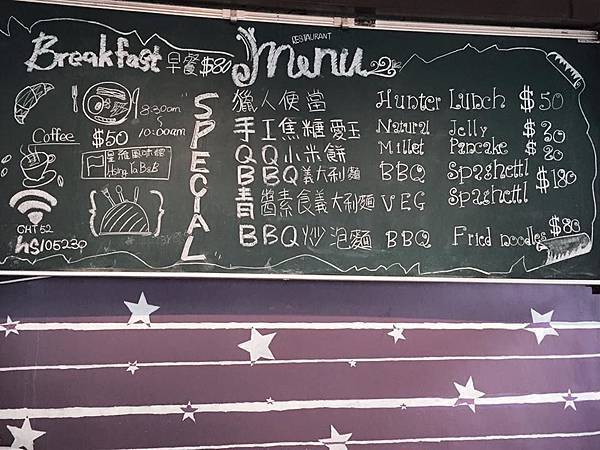 Breakfast 早餐 $80
RESTAURANT
menu
8:30am
~
10:00am
Coffee
$50
風味館
CHT52
hs105230
SPECIAL
獵人便當 Hunter Lunch $50
手工焦糖愛玉 Natural Jelly $20
QQ小米餅 Millet Pancake $20
BBQ義大利麵 BBQ Spaghettl $180
青醬素食義大利麵 VEG Spaghettl
BBQ炒泡麵 BBQ Fried noodles $80